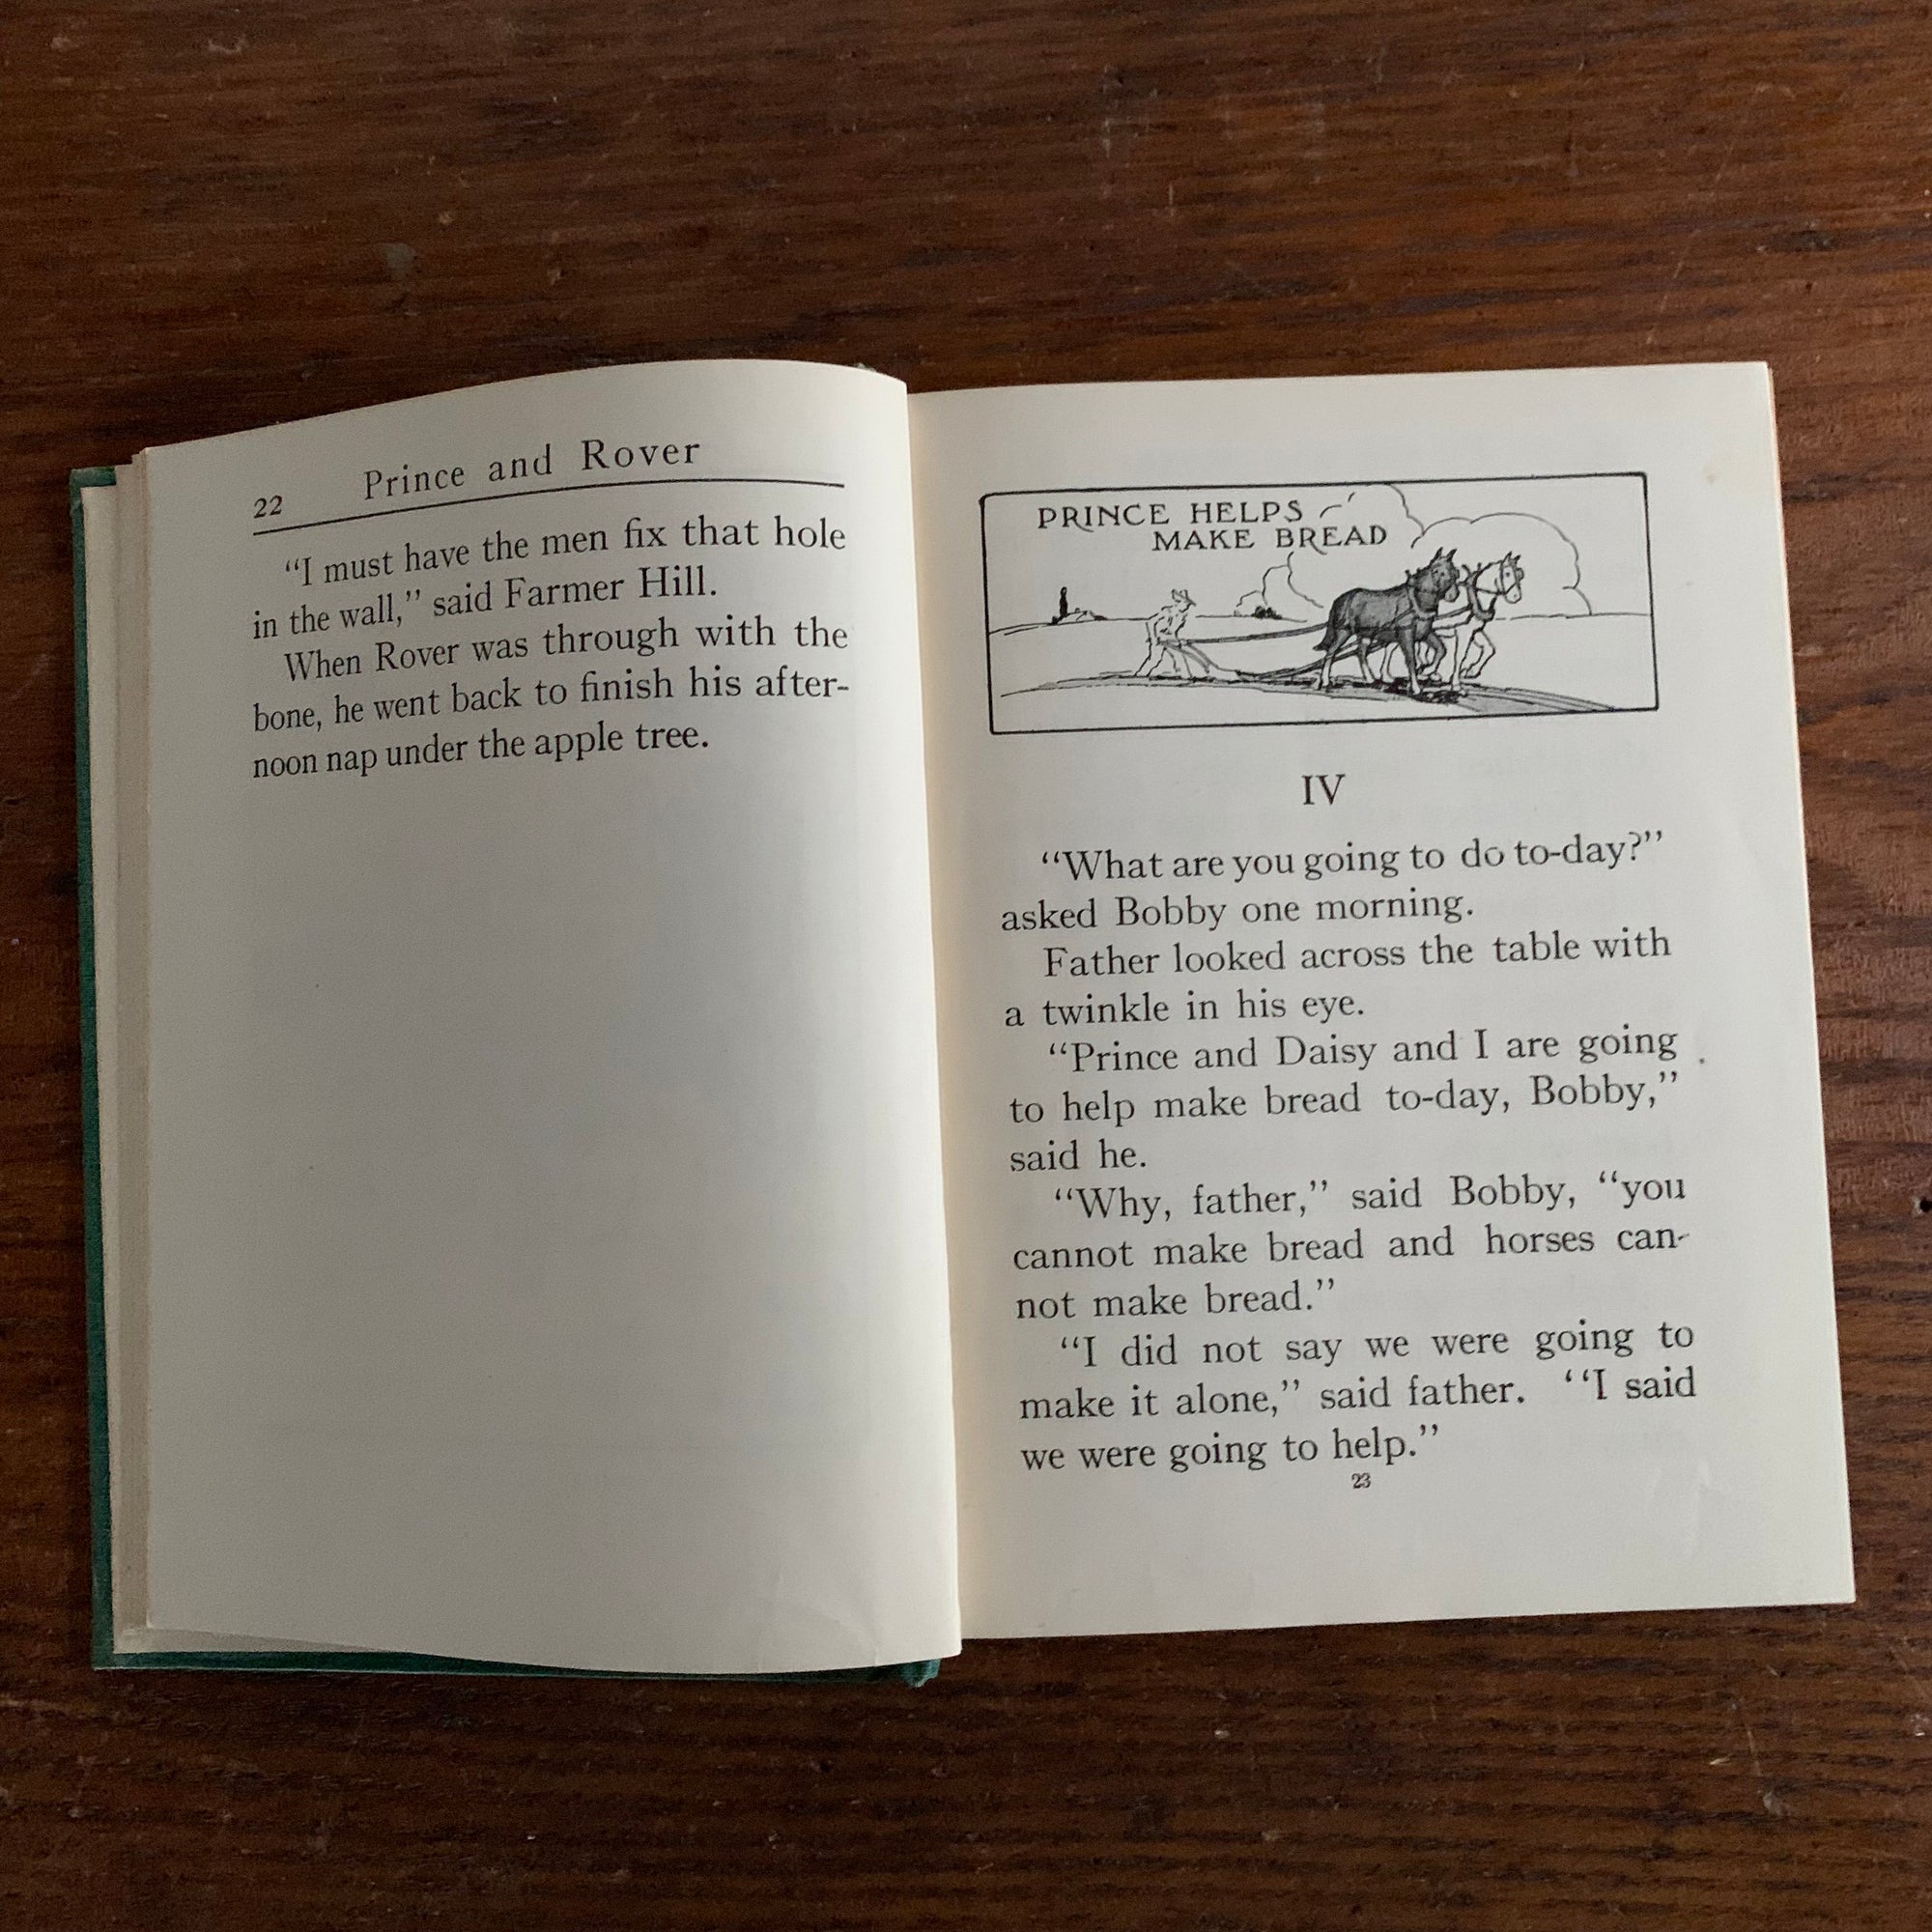 22 Prince and Rover
“I must have the men fix that hole
in the wall,” said Farmer Hill.
When Rover was through with the
bone, he went back to finish his after-
noon nap under the apple tree.
PRINCE HELPS
MAKE BREAD
IV
“What are you going to do to-day?”
asked Bobby one morning.
Father looked across the table with
a twinkle in his eye.
“Prince and Daisy and I are going
to help make bread to-day, Bobby,”
said he.
“Why, father,” said Bobby, “you
cannot make bread and horses can-
not make bread.”
“I did not say we were going to
make it alone,” said father. “I said
we were going to help.”
23